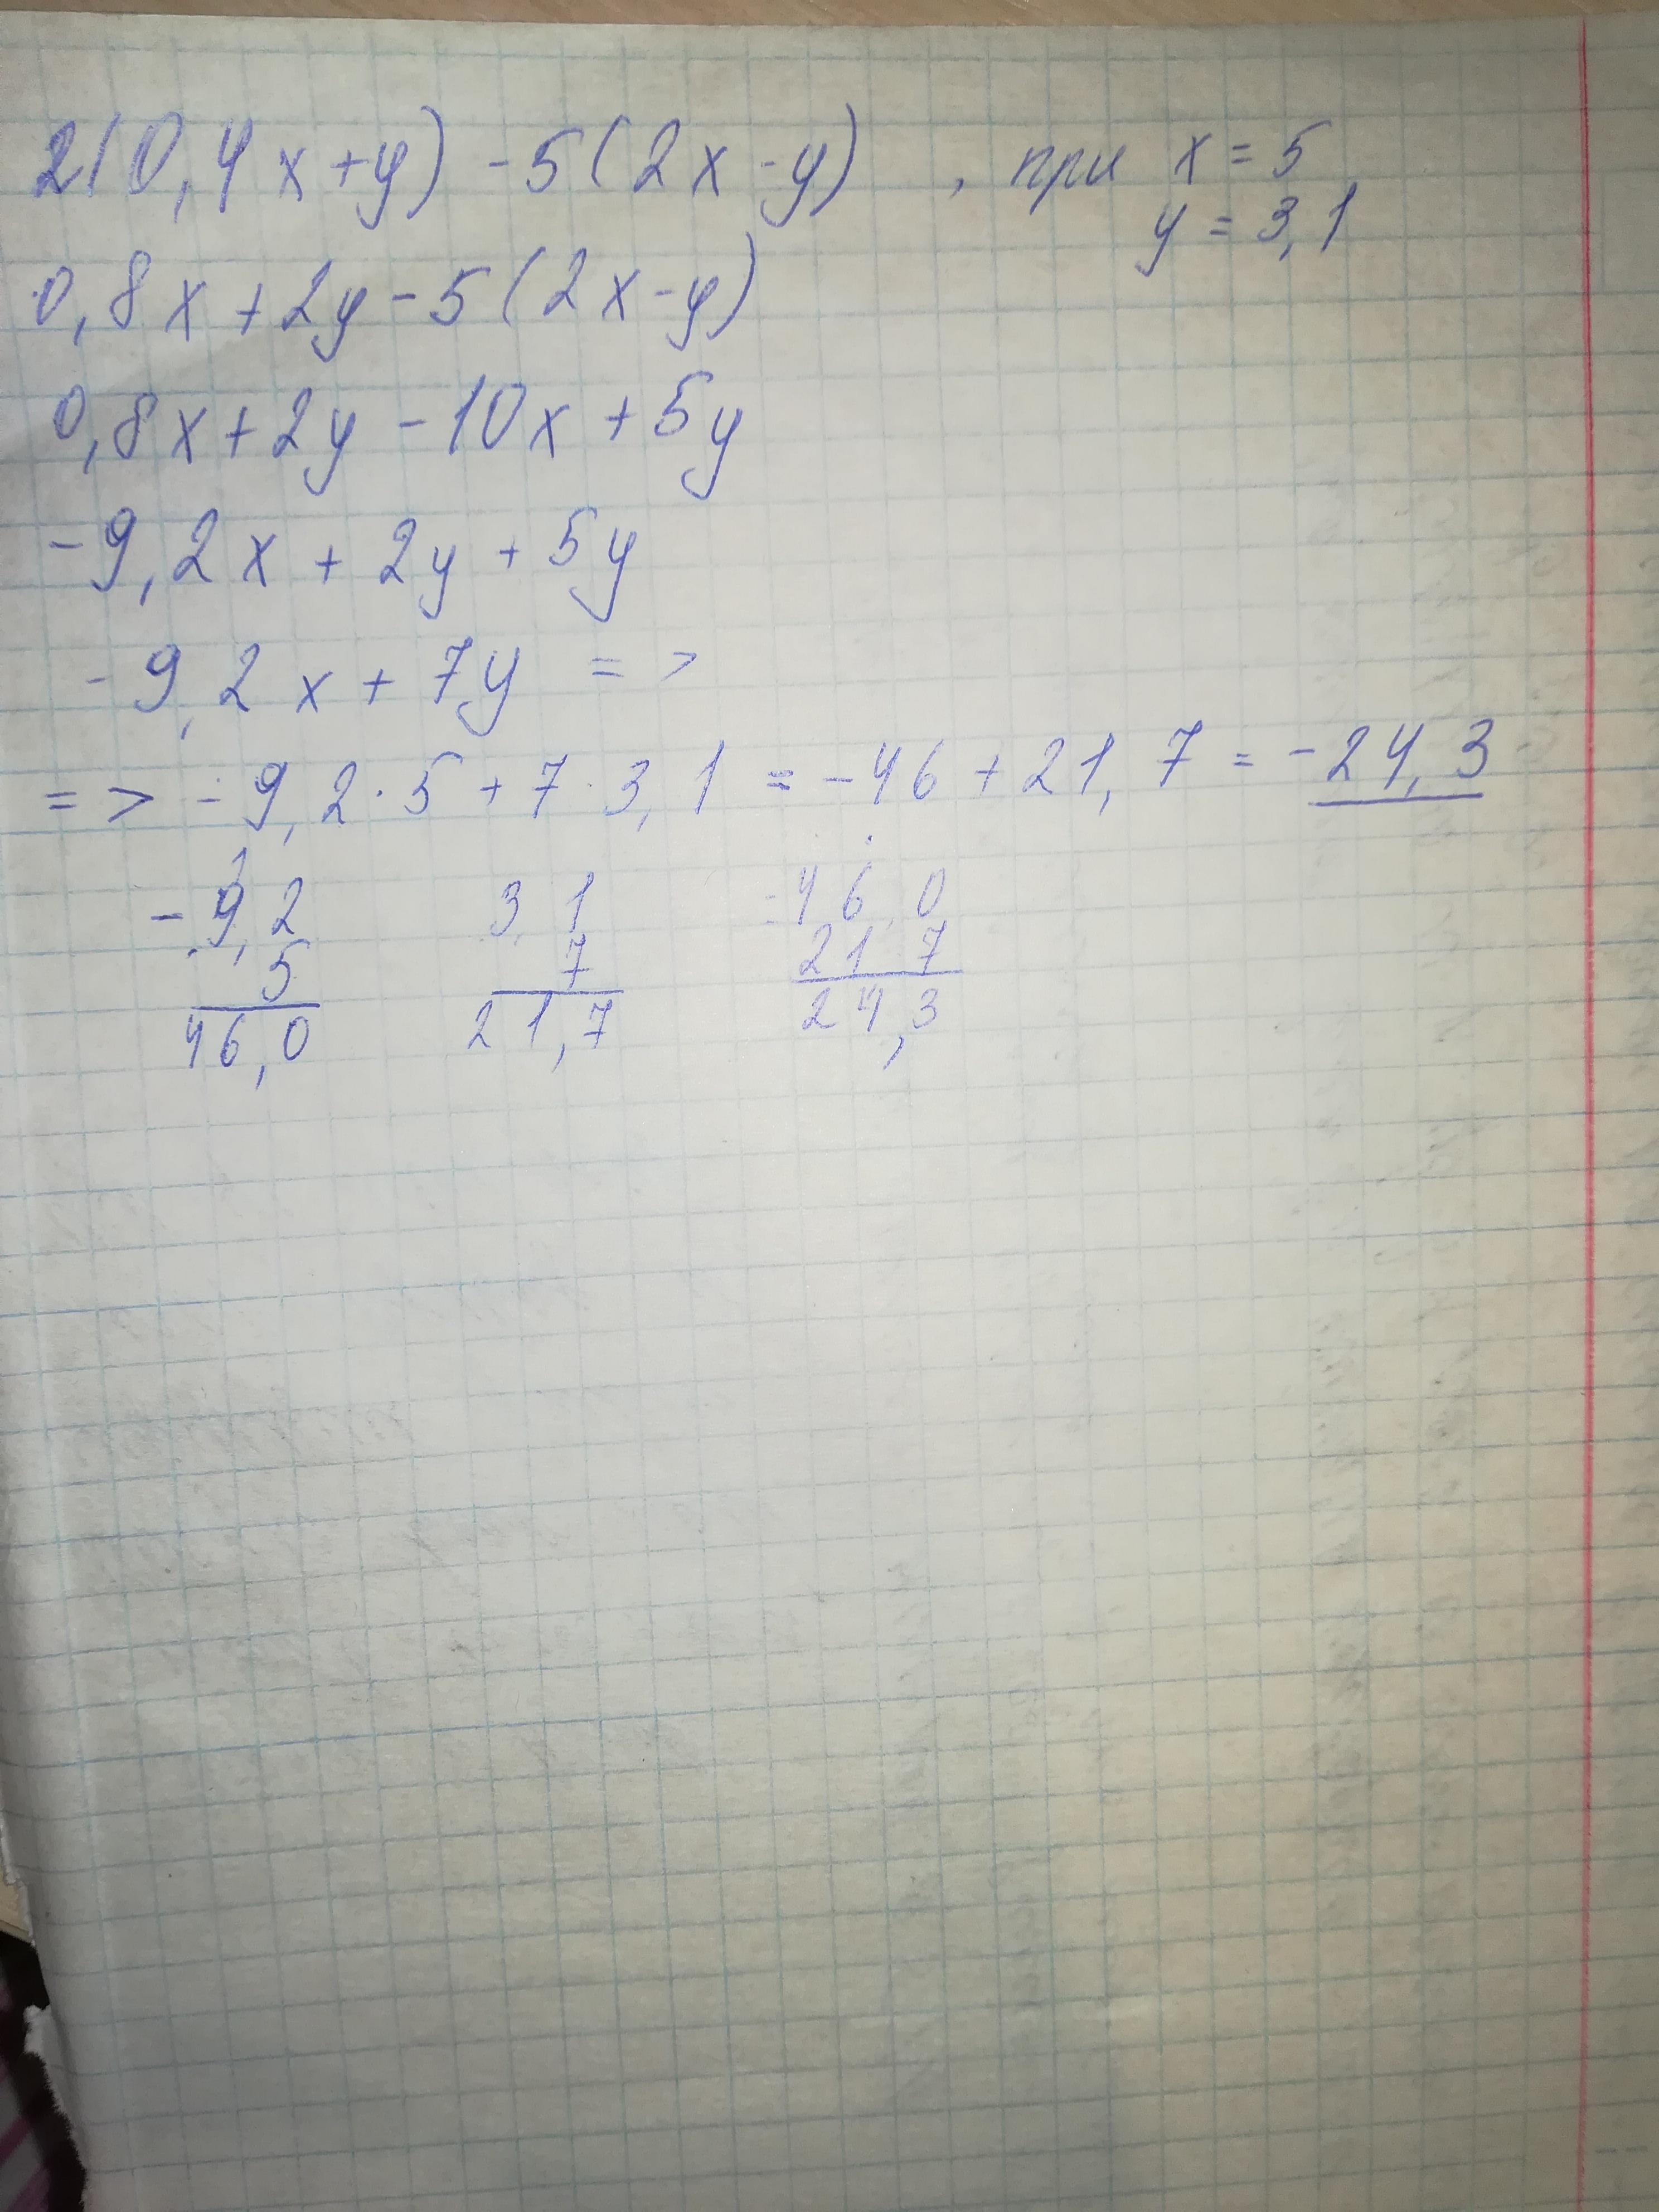 2(0,4x+y) -5(2x-y) , при x=5
y=3,1
0,8x+2y-5(2x-y)
0,8x+2y-10x+5y
-9,2x+2y+5y
-9,2x+7y =>
=> -9,2·5+7·3,1=-46+21,7=-24,3
1
-9,2 3,1 -46,0
5 7 21 7
46,0 21,7 24,3